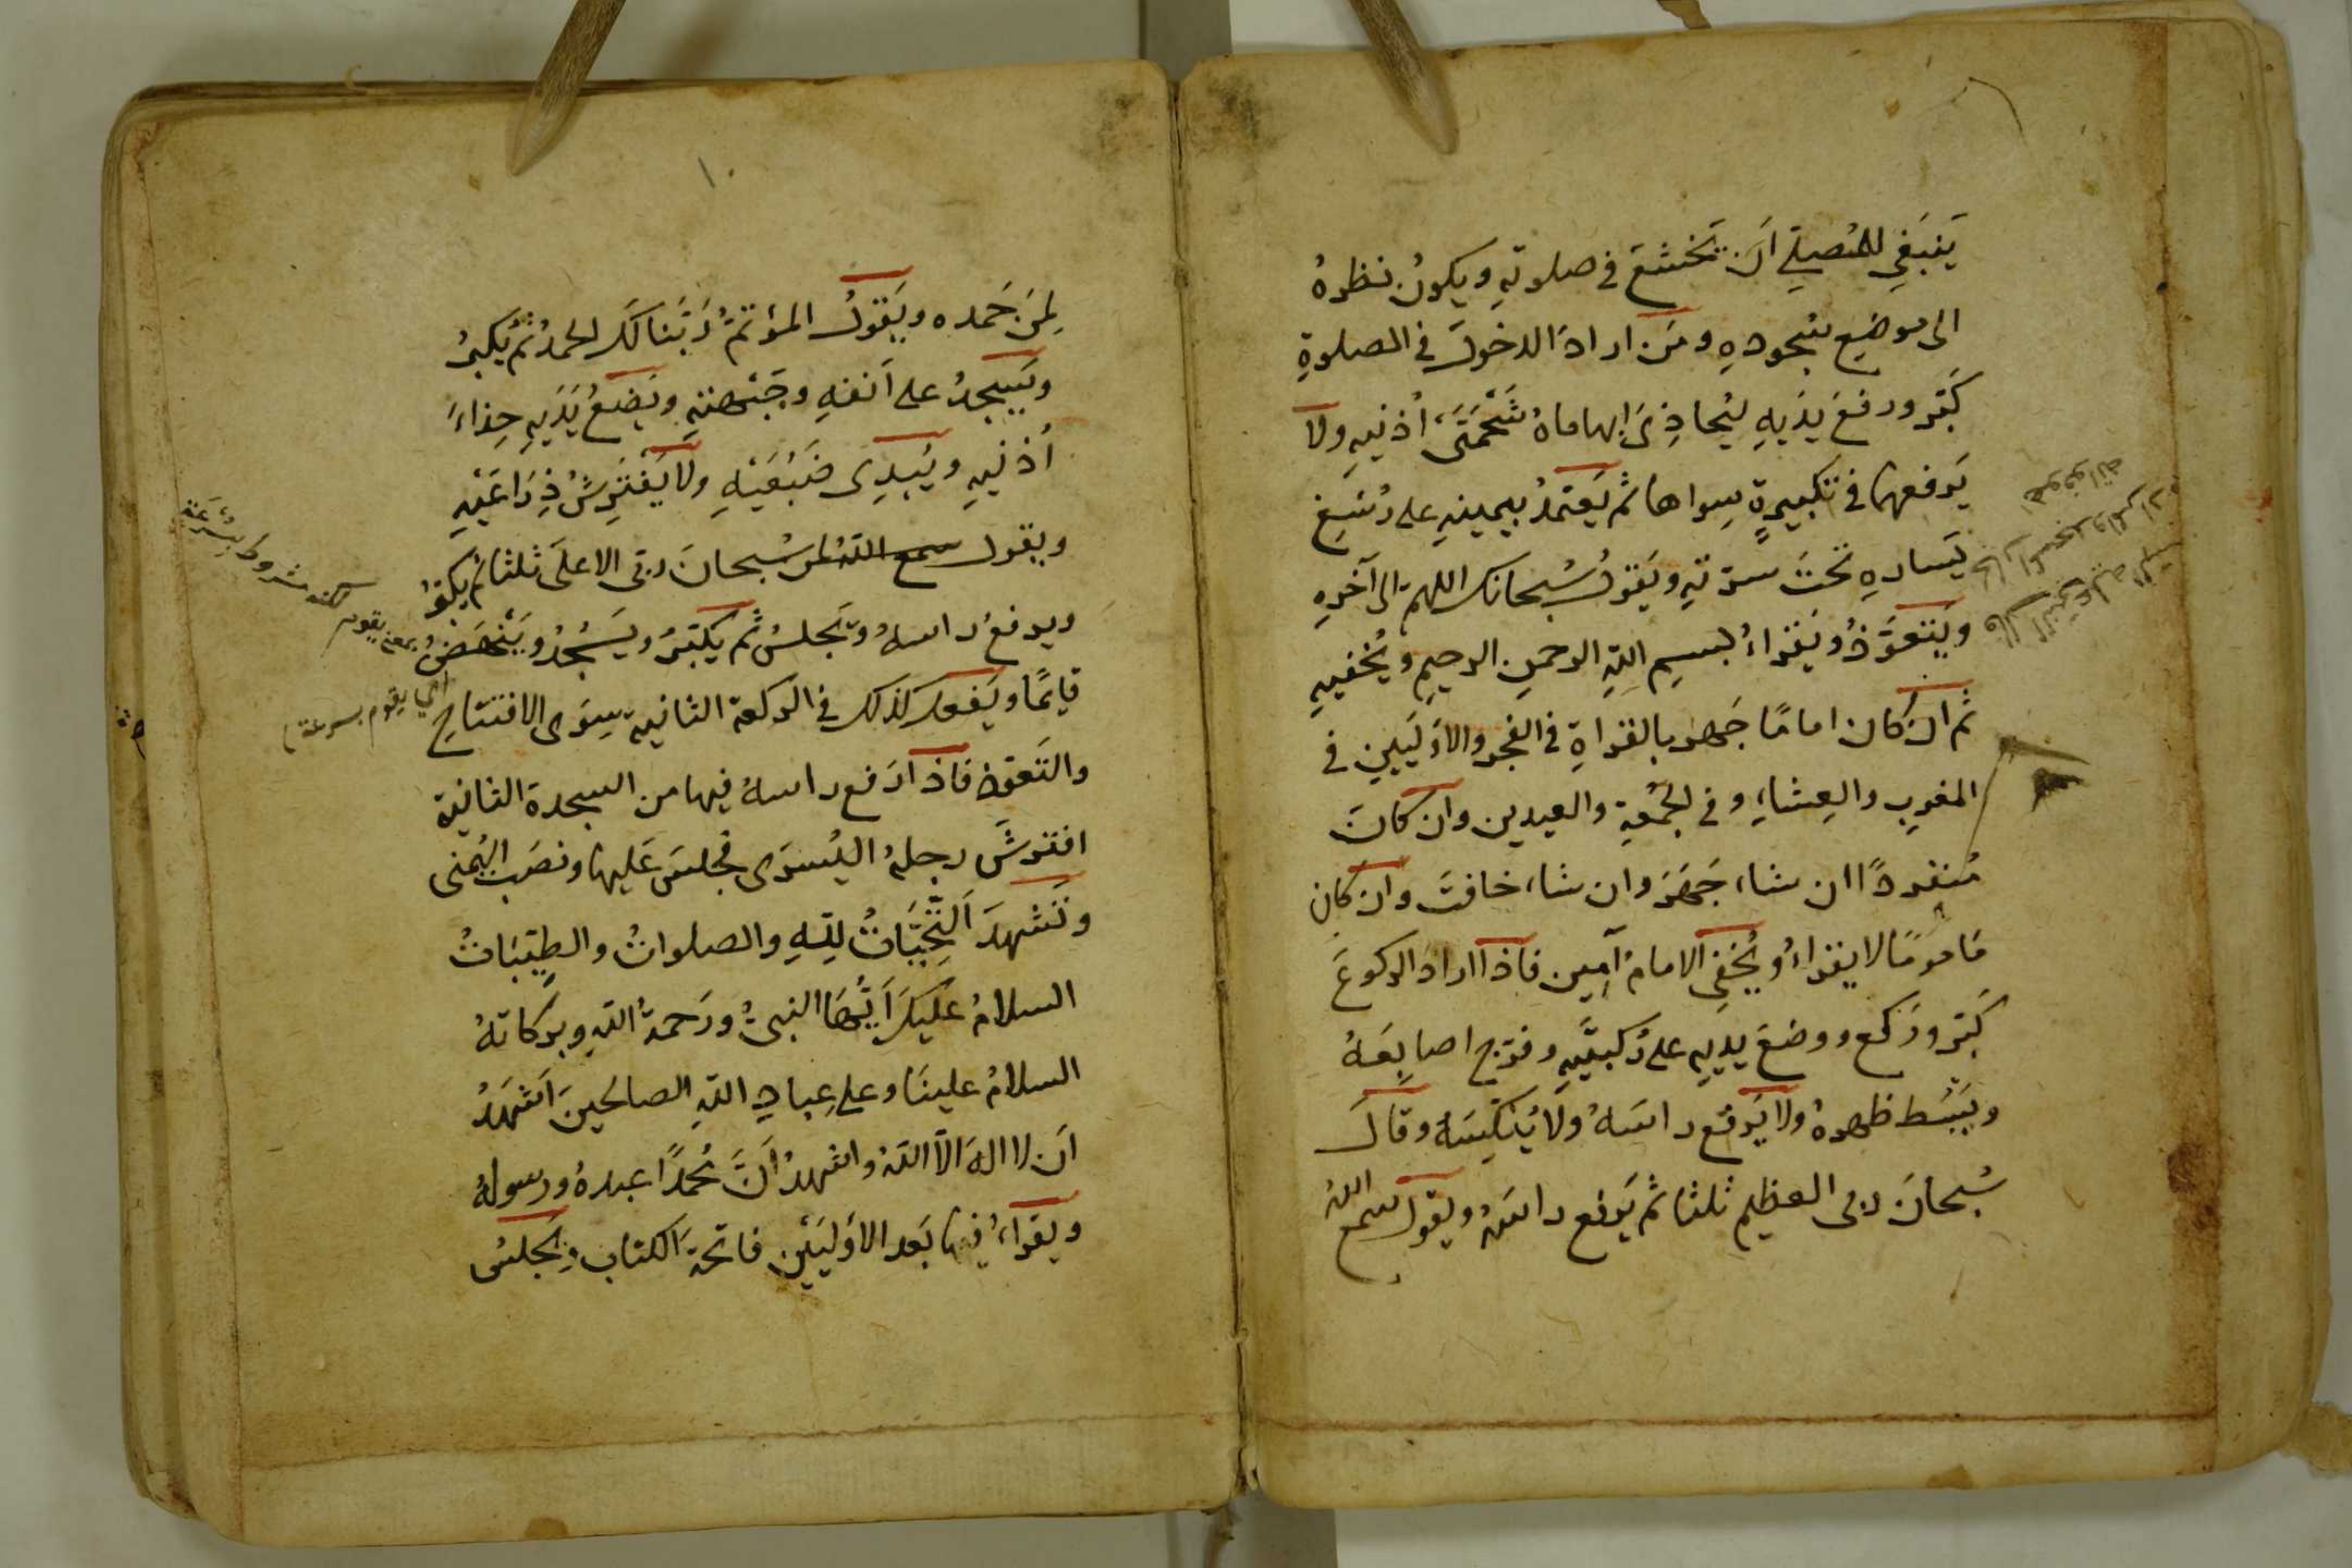 يَنبَغي للمُصلي اَن يَخشعَ في صلوتهِ ويكونُ نظرهُ
الى موضعِ سُجودهِ ومَن ارادَ الدخولَ في الصلوةِ
كَبّر ورفعَ يدَيهِ ليُحاذِىَ ابهاماهُ شَحْمَتَىْ اُذنيهِ ولا
يَرفعهما في تكبيرةٍ سِواها ثم يَعتمدُ بيمينهِ على رُسْغِ
يَسارهِ تحتَ سرّتهِ ويَقولُ سُبحانك اللهمّ الى آخرهِ
ويَتعوَّذُ ويَقراءُ بسمِ اللهِ الرحمنِ الرحيمِ ويُخفيهِ
ثم ان كان امامًا جَهر بالقراةِ في الفجر والاوليَيْنِ في
المغربِ والعِشاءِ وفي الجُمْعةِ والعيدين وان كانَ
مُنفردًا ان شاء جَهَرَ وان شاء خافتَ وان كان
مَامومًا لا يقراءُ ويُخفي الامامُ آمين فاذا ارادَ الركوعَ
كَبّر ورَكع ووضعَ يديهِ على رُكبتَيهِ وفرّج اصابِعَهُ
ويَبسُط ظهرهُ ولا يَرفع راسَهُ ولا يُنكّسَه وقالَ
سُبحانَ ربي العظيم ثلثا ثم يَرفع راسَهُ ويقول سمع اللهُ
١٠
لِمن حَمده ويَقولُ المؤتمُّ رَبَّنا لكَ الحمدُ ثم يُكبرُ
ويَسجدُ على اَنفهِ وجَبْهتهِ ويَضعُ يَدَيهِ حِذاءَ
اُذنيهِ ويُبدِى ضَبْعَيْهِ ولا يَفترِشُ ذِراعَيْهِ
ويقول سمع الله لمن سُبحانَ ربي الاعلَى ثلثا ثم يكبّرُ
ويرفعُ راسهُ ويَجلسُ ثم يكبّرُ ويَسْجُدُ ويَنْهَضُ
بمعنى يقوم لكنه مشروط بسُرعَة
قايمًا ويَفعلُ كذلك في الركعة الثانية سِوَى الافتتاحِ
اي يقوم بسرعة
والتَعوّذ فاذا رَفع راسهُ فيها من السجدة الثانية
افترشَ رجلهُ اليُسرَى فجلسَ عَليها ونصَب اليُمنى
وتَشهدَ اَلتّحيَّاتُ للهِ والصلواتُ والطيّبَاتُ
السلامُ عَليكَ اَيُّها النبىُّ ورَحمةُ اللهِ وبركاتهُ
السلامُ علينا وعلى عِبادِ اللهِ الصالحينَ اَشهَدُ
اَن لا الهَ الاّ اللهُ واشهدُ اَنَّ مُحمدًا عبدهُ ورسولهُ
ويقراءُ فيما بَعد الاَوليَيْنِ فاتحةَ الكتابِ ويَجلسُ